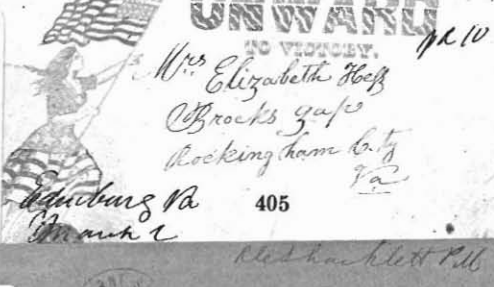 ONWARD
TO VICTORY.
Mrs Elizabeth Hess
Brocks gap
Rockingham C.ty
Va
Edinburg Va
March 2
405
P.M.